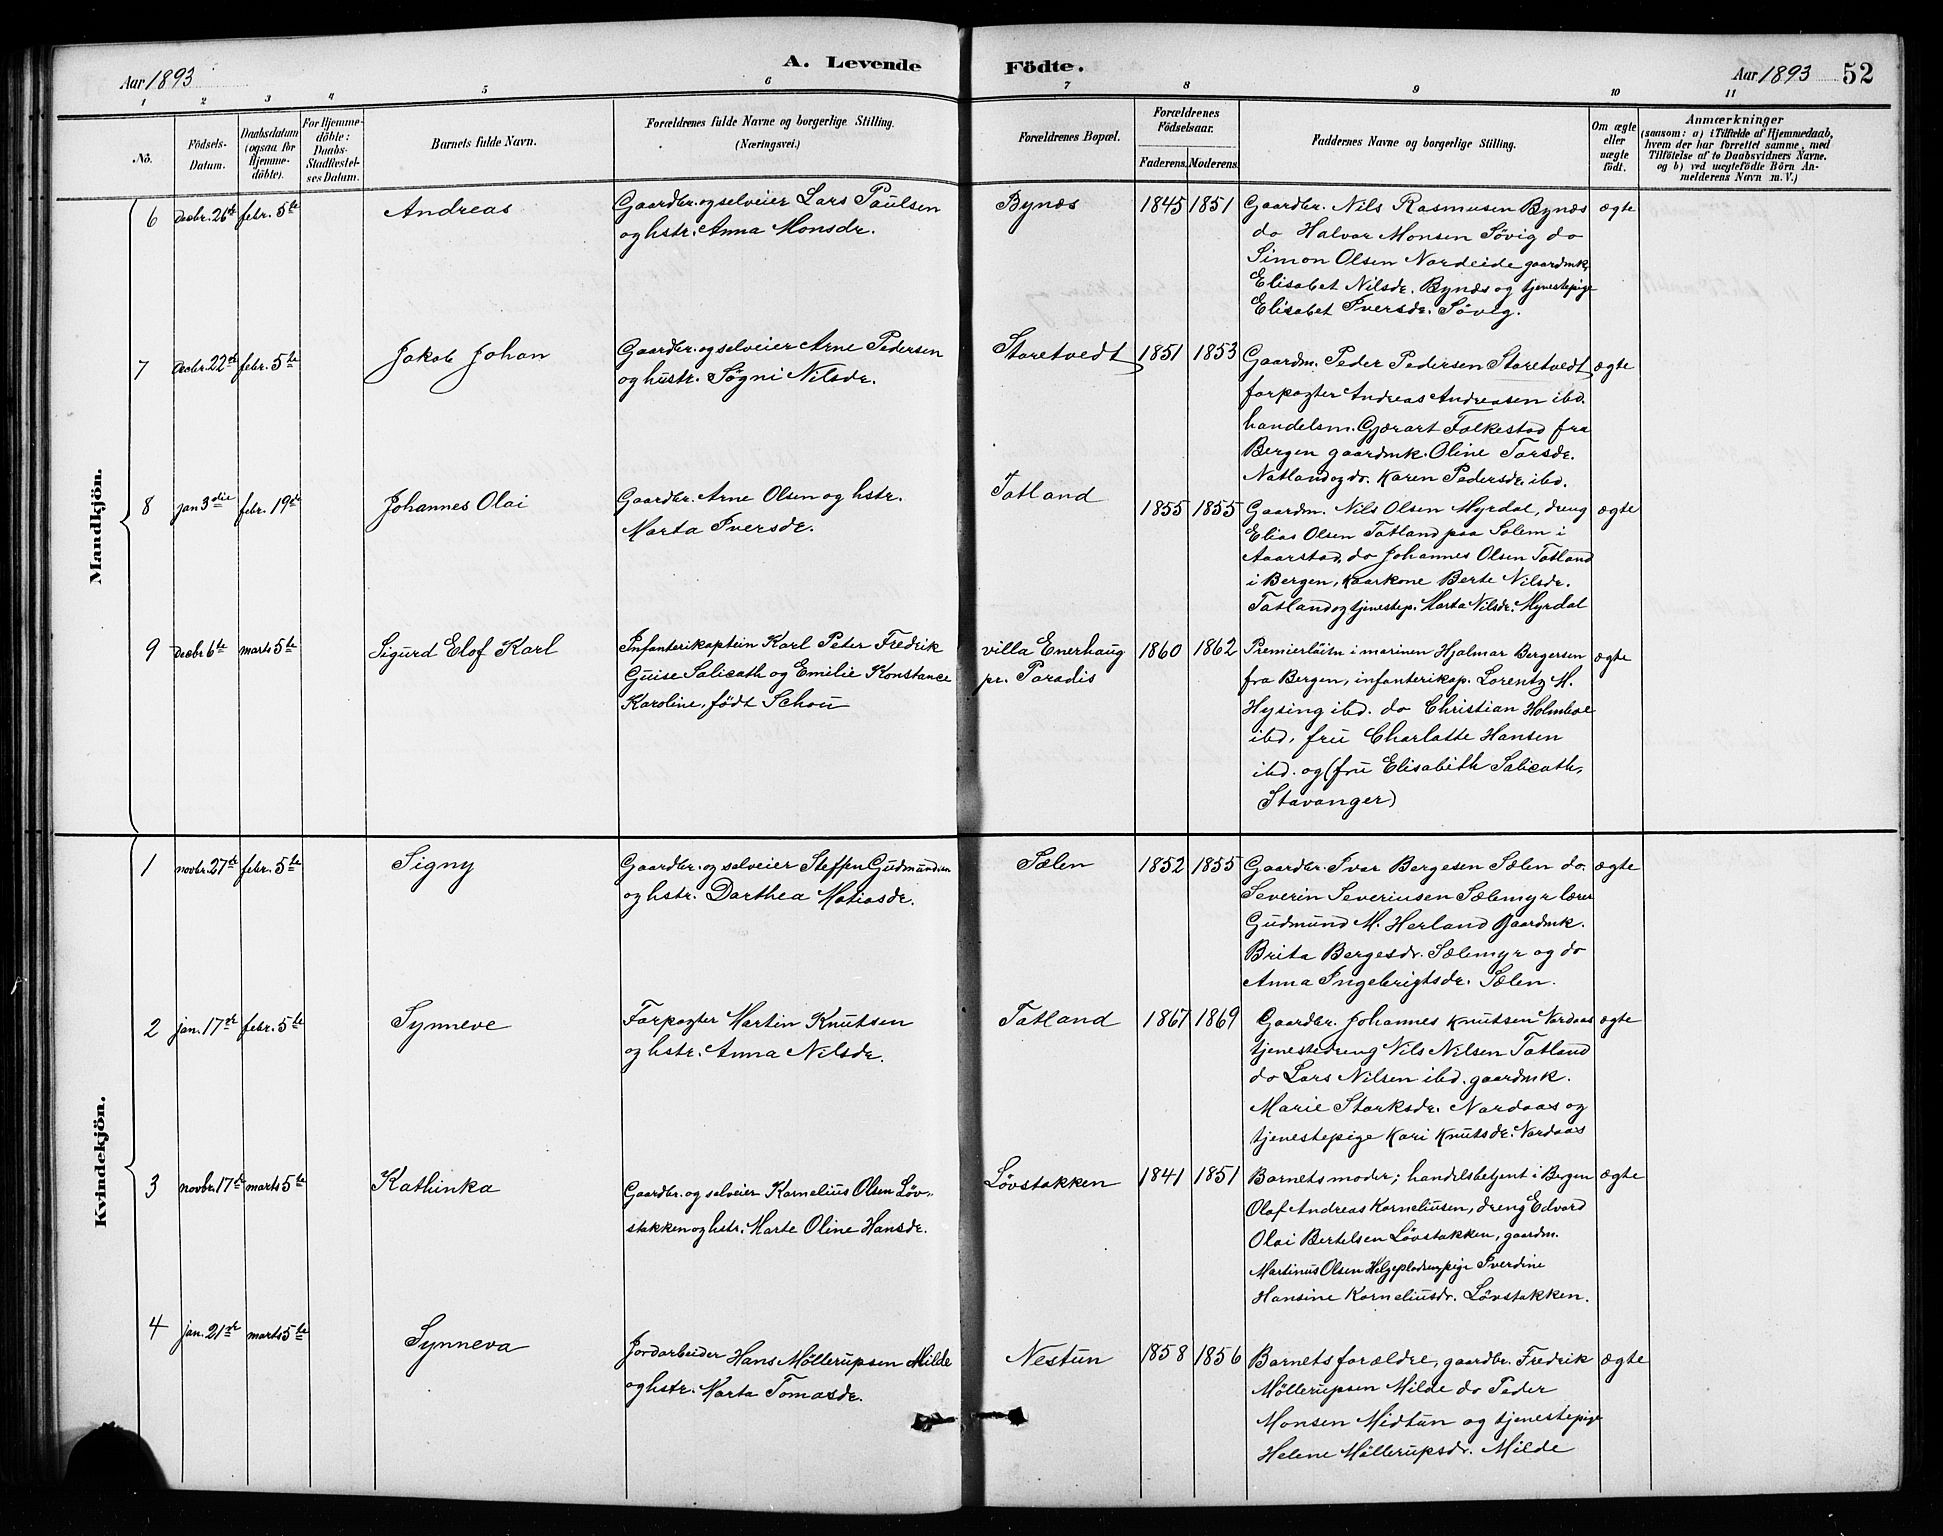 A. Levende Födte.
Aar 1893
Aar 1893 52
1 2 3 4 5 6 7 8 9 10 11
No.
Födsels-Datum.
Daabsdatum (ogsaa for Hjemme-döbte).
For Hjemme-döbte: Daabs-Stadfæstel-ses Datum.
Barnets fulde Navn.
Forældrenes fulde Navne og borgerlige Stilling. (Næringsvei.)
Forældrenes Bopæl.
Forældrenes Födselsaar.
Faderens. Moderens.
Faddernes Navne og borgerlige Stilling.
Om ægte eller uægte født.
Anmærkninger
(saasom: a) i Tilfælde af Hjemmedaab, hvem der har forrettet samme, med Tilföielse af to Daabsvidners Navne. og b) ved uægtefödte Börn An-melderens Navn m. V.)
Mandkjön.
6 Decbr. 26de febr. 5te Andreas
Gaardbr. og selveier Lars Paulsen
og hstr. Anna Monsdr.
Bynæs 1845 1851
Gaardbr. Nils Rasmusen Bynæs
do Halvor Monsen Søvig do
Simon Olsen Nordeide gaardmk.
Elisabet Nilsdr. Bynæs og tjenestepige
Elisabet Iversdr. Søvig.
ægte
7 Decbr. 22de febr. 5te Jakob Johan
Gaardbr. og selveier Arne Pedersen
og hustr. Søgni Nilsdr.
Storetvedt 1851 1853
Gaardm. Peder Pedersen Storetvedt
forpagter Andreas Andreasen ibd.
handelsm. Gjerart Folkestad fra
Bergen gaardmk. Oline Torsdr.
Natland og do. Karen Pedersdr. ibd.
ægte
8 jan 3die febr. 19de Johannes Olai
Gaardbr. Arne Olsen og hstr.
Marta Iversdr.
Totland 1855 1855
Gaardm. Nils Olsen Myrdal, dreng
Elias Olsen Totland paa Solem i
Aarstad, do Johannes Olsen Totland
i Bergen, kaarkone Berte Nilsdr.
Totland og tjenestep. Marta Nilsdr. Myrdal
ægte
9 Decbr 6te marts 5te Sigurd Elof Karl
Infanterikaptein Karl Peter Fredrik
Guise Salicath og Emilie Konstance
Karoline, født Schou
villa Enerhaug
pr. Paradis
1860 1862
Premierløitn i marinen Hjalmar Bergersen
fra Bergen, infanterikap. Lorentz M.
Hysing ibd. do Christian Holmboe
ibd, fru Charlatte Hansen
ibd. og (fru Elisabeth Salicath,
Stavanger)
ægte
Kvindekjön.
1 novbr. 27de febr. 5te Signy
Gaardbr. og selveier Steffen Gudmundsen
og hstr. Dorthea Matiasdr.
Sælen 1852 1855
Gaardbr. Ivar Bergesen Sælen do.
Severin Severinsen Sælemyr lærer
Gudmund M. Herland Gaardmk.
Brita Bergesdr. Sælemyr og do
Anna Ingebrigtsdr. Sælen.
ægte
2 jan. 17de febr. 5te Synneve
Forpagter Martin Knutsen
og hstr. Anna Nilsdr.
Totland 1867 1869
Gaardbr. Johannes Knutsen Nordaas
tjenestedreng Nils Nilsen Totland
do Lars Nilsen ibd. gaardmk.
Marie Storksdr. Nordaas og
tjenestepige Kari Knutsdr. Nordaas
ægte
3 novbr. 17de marts 5te Kathinka
Gaardbr. og selveier Kornelius Olsen Løv-
stakken og hstr. Marte Oline Hansdr.
Løvstakken 1841 1851
Barnets moder; handelsbetjent i Bergen
Olaf Andreas Korneliusen, dreng Edvard
Olai Bertelsen Løvstakken, gaardm.
Martinus Olsen pige Iverdine
Hansine Korneliusdr. Løvstakken.
ægte
4 jan. 21de marts 5te Synneva
Jordarbeider Hans Møllerupsen Milde
og hstr. Marta Tomasdr.
Nestun 1858 1856
Barnets forældre, gaardbr. Fredrik
Møllerupsen Milde do Peder
Monsen Midtun og tjenestepige
Helene Møllerupsdr. Milde
ægte